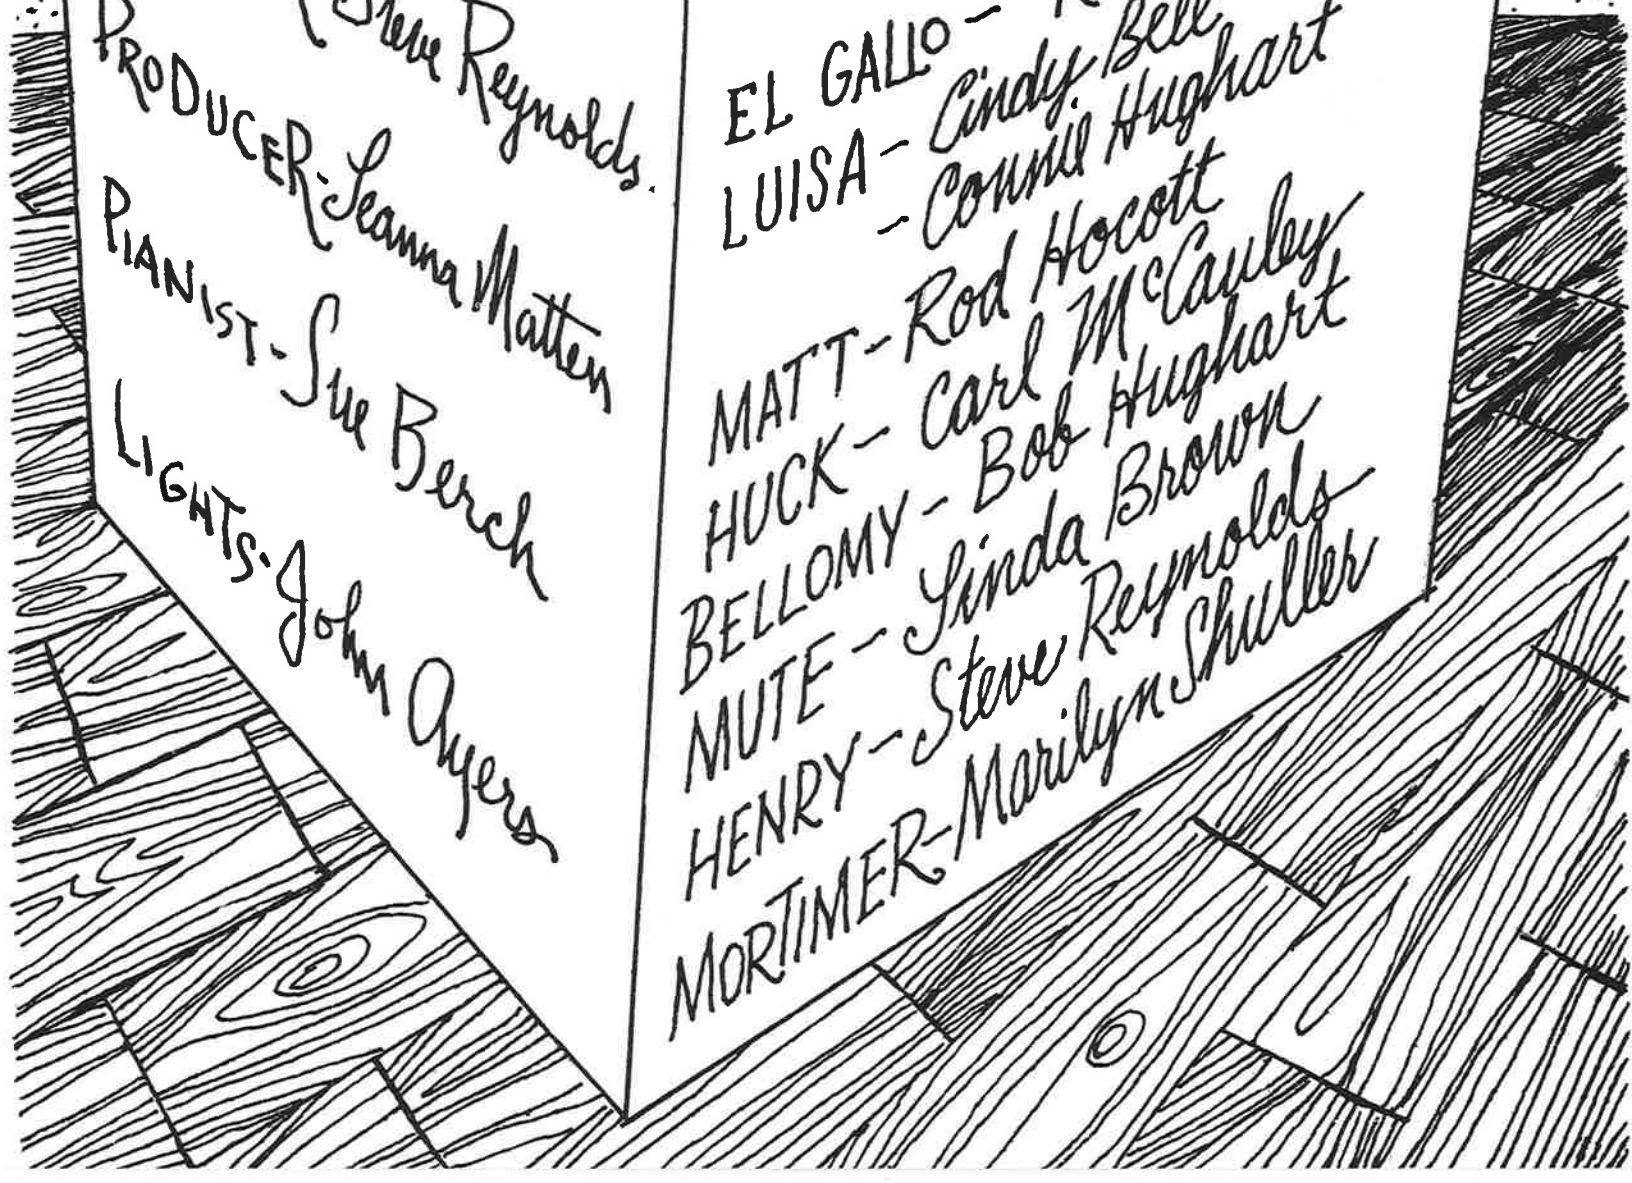 Steve Reynolds.
PRODUCER-Leanna Matten
PIANIST-Sue Berch
LIGHTS-John Ayers
EL GALLO-
LUISA-Cindy Bell
-Connie Hughart
MATT-Rod Hocott
HUCK-Carl McCauley
BELLOMY-Bob Hughart
MUTE-Linda Brown
HENRY-Steve Reynolds
MORTIMER-Marilyn Shuller